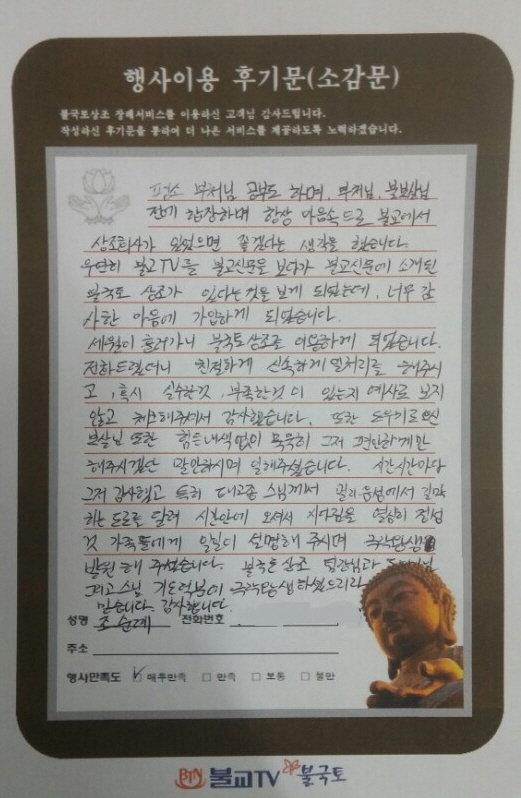 행사이용 후기문(소감문)
불국토상조 장례서비스를 이용하신 고객님 감사드립니다.
작성하신 후기문을 통하여 더 나은 서비스를 제공하도록 노력하겠습니다.
평소 부처님 공부도 하며, 부처님, 불보살님
전에 합장하며 항상 마음속으로 불교에서
상조회사가 있었으면 좋겠다는 생각을 했습니다.
우연히 불교TV를 불교신문을 보다가 불교신문에 소개된
불국토 상조가 있다는것을 보게 되었는데, 너무 감
사한 마음에 가입하게 되었습니다.
세월이 흘러가니 불국토상조를 이용하게 되었습니다.
전화드렸더니 친절하게 신속하게 일처리를 해주시
고, 혹시 실수한것, 부족한것이 있는지 예사로 보지
않고 체크해주셔서 감사했습니다. 또한 도우미로 오신
보살님 또한 힘든내색없이 묵묵히 그저 편안하게만
해주시겠단 말만하시며 일해주셨습니다. 시간시간마다
그저 감사했고 특히 대고종 스님께서 멀리 음성에서
하는 도로를 달려 시간안에 오셔서 시다림을 열심히
것 가족들에게 일일이 설명해 주시며 극락왕생
발원 해 주셨습니다. 불국토 상조
그리고 스님 기도덕분에 극락왕생 하셨으리라
믿습니다. 감사합니다.
성명 조순례 전화번호
주소
행사만족도 ☑ 매우만족 □ 만족 □ 보통 □ 불만
BTN 불교TV 불국토